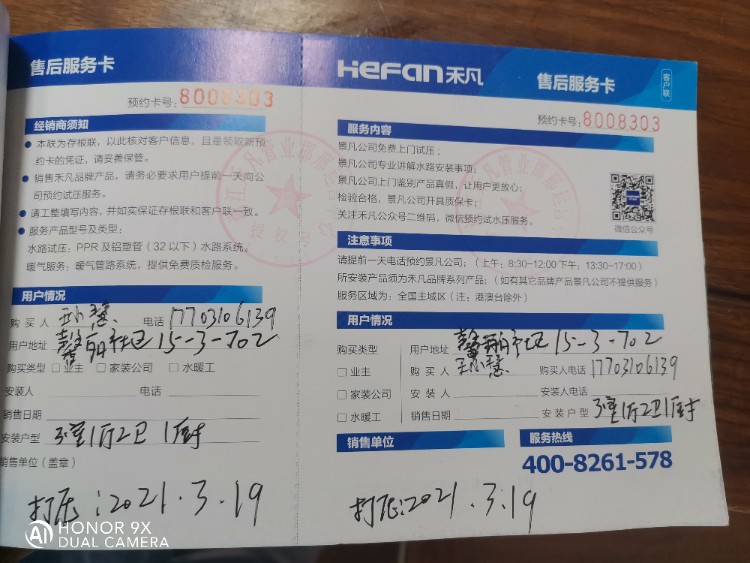 售后服务卡
预约卡号: 8008303
经销商须知
本联为存根联，以此核对客户信息，且是领取新预
约卡的凭证，请妥善保管。
销售禾凡品牌产品，请务必要求用户提前一天向公
司预约试压服务。
请工整填写内容，并如实保证存根联和客户联一致。
服务产品型号及类型：
水路试压：PPR 及铝塑管（32 以下）水路系统。
暖气服务：暖气管路系统，提供免费质检服务。
用户情况
购 买 人 电话 17703106139
用户地址 15-3-702
购买类型 业主 家装公司 水暖工
安装人 电话
销售日期
安装户型 3室1厅2卫 1厨
销售单位（盖章）
打压：2021.3.19
HEFAN 禾凡 售后服务卡
客户联
预约卡号: 8008303
服务内容
景凡公司免费上门试压；
景凡公司专业讲解水路安装事项；
景凡公司上门鉴别产品真假，让用户更放心；
检验合格，景凡公司开具质保卡；
关注禾凡公众号二维码，微信预约试水压服务。
微信公众号
注意事项
请提前一天电话预约景凡公司；（上午：8:30-12:00 下午：13:30-17:00）
所安装产品须为禾凡品牌系列产品；（如有其它品牌产品景凡公司不提供服务）
服务区域为：全国主城区（注：港澳台除外）
用户情况
购买类型 用户地址 15-3-702
业主 购 买 人 购买人电话 17703106139
家装公司 安 装 人 安装人电话
水暖工 销售日期 安装户型 3室1厅2卫1厨
销售单位 服务热线
400-8261-578
打压：2021.3.19
AI HONOR 9X
DUAL CAMERA